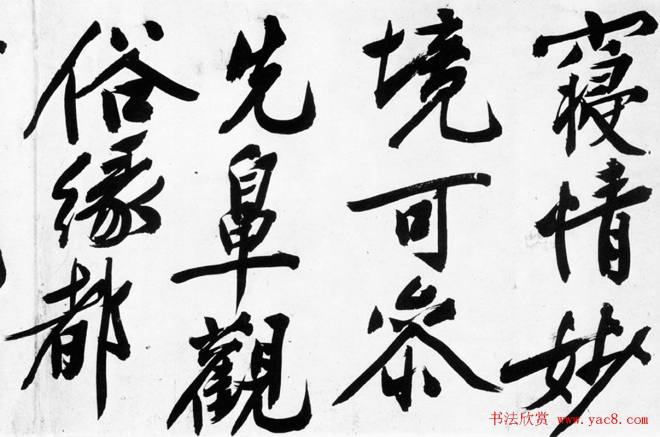 寢情妙
境可参
先鼻觀
俗緣都
书法欣赏 www.yac8.com